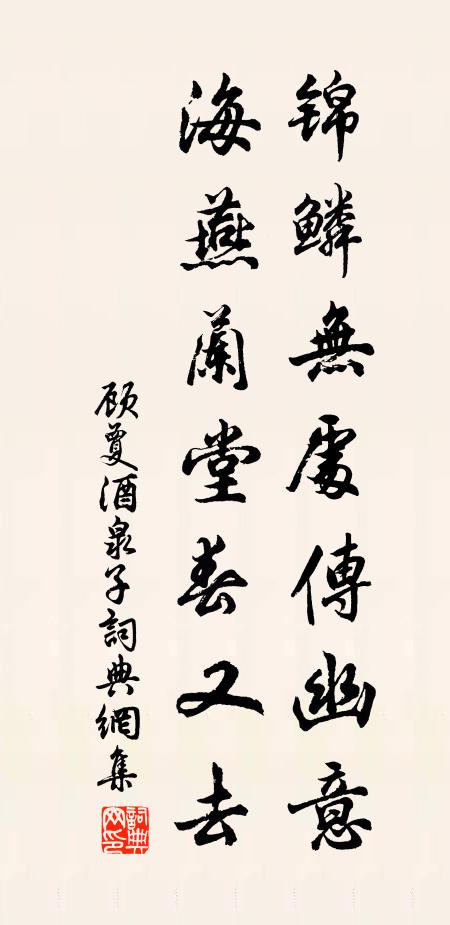 锦鳞無處傳幽意
海燕蘭堂春又去
顾敻酒泉子詞典網集
詞典網印